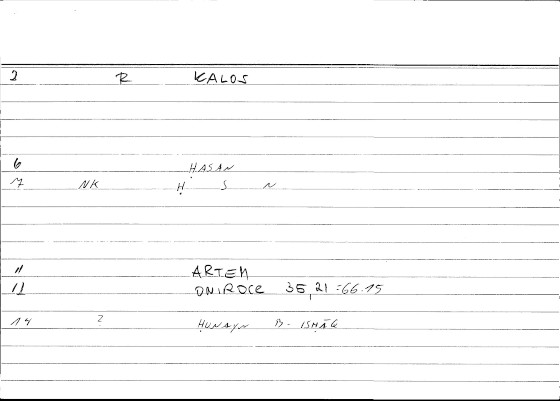 2 R KALOS
6 ḤASAN
7 NK Ḥ S N
11 ARTEM
11 ONIROCR 35,21 = 66.15
14 2 ḤUNAYN B- ISḤĀQ